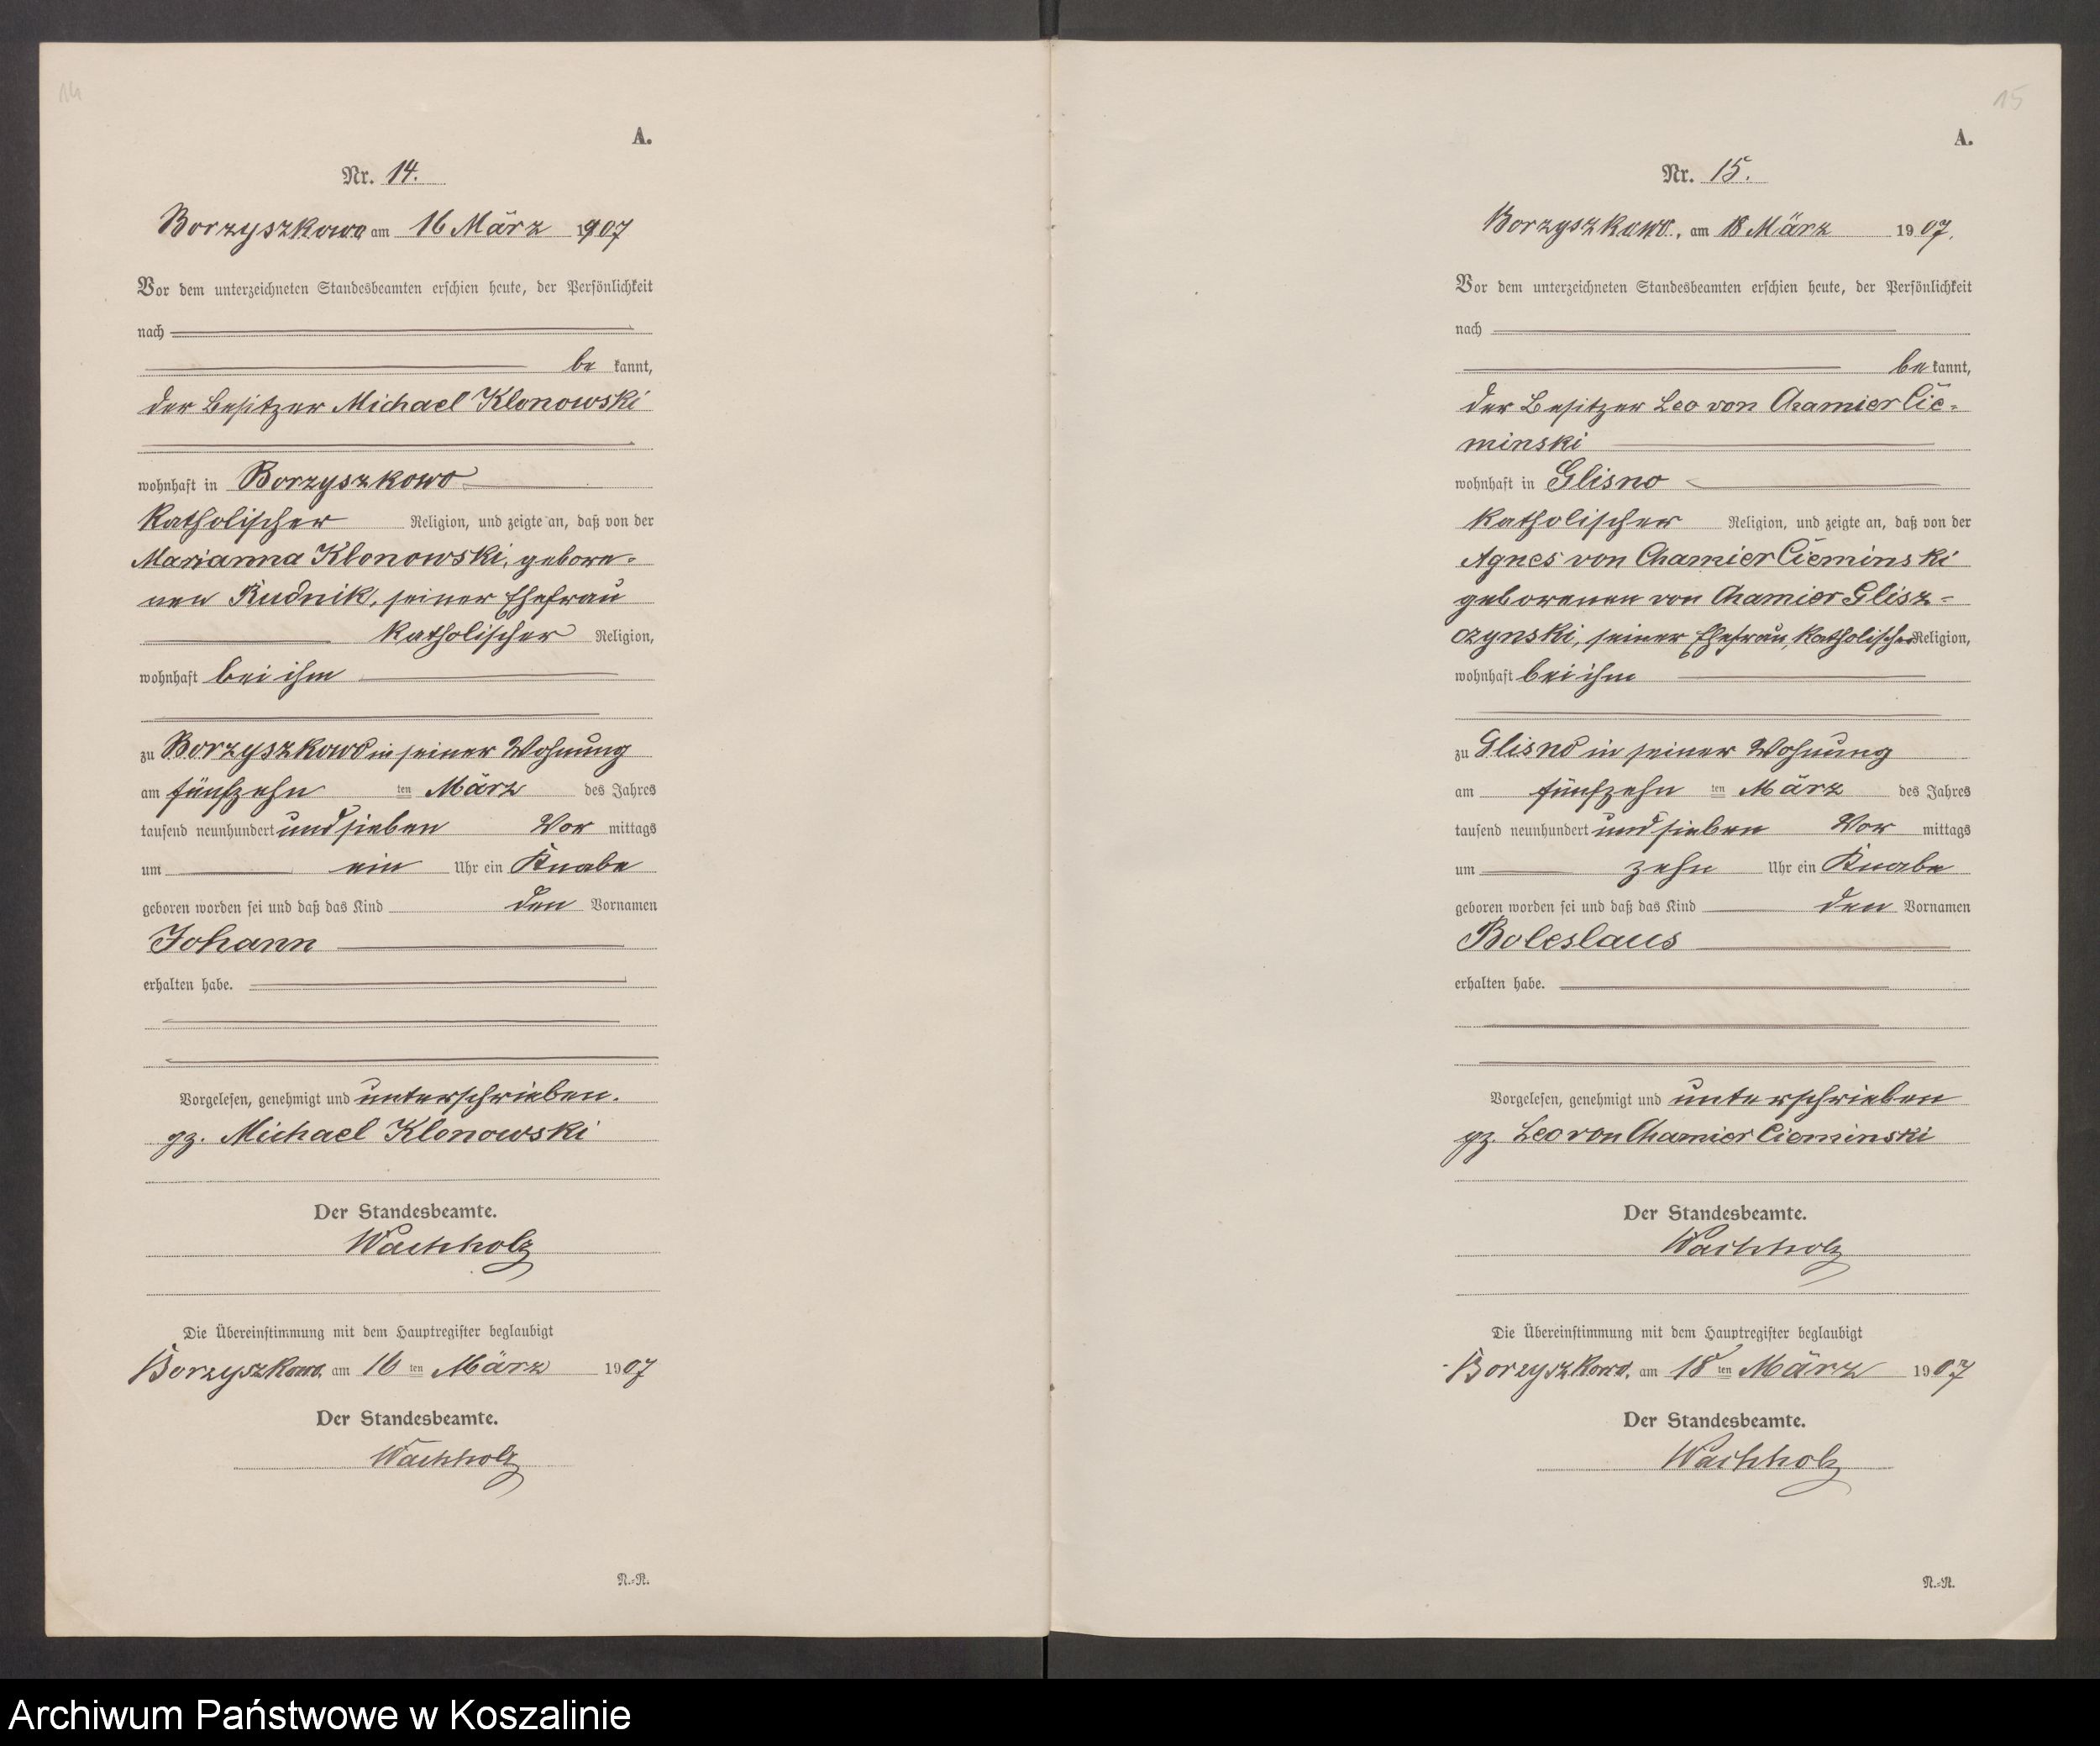 14
A.
Nr. 14.
Borzyszkowo am 16 März 1907
Vor dem unterzeichneten Standesbeamten erschien heute, der Persönlichkeit
nach
be kannt,
der Besitzer Michael Klonowski
wohnhaft in Borzyszkowo
katholischer Religion, und zeigte an, daß von der
Marianna Klonowski, gebore-
nen Rudnik, seiner Ehefrau
katholischer Religion,
wohnhaft bei ihm
zu Borzyszkowo in seiner Wohnung
am fünfzehn ten März des Jahres
tausend neunhundert und sieben Vor mittags
um ein Uhr ein Knabe
geboren worden sei und daß das Kind den Vornamen
Johann
erhalten habe.
Vorgelesen, genehmigt und unterschrieben.
gz. Michael Klonowski
Der Standesbeamte.
Wachholz
Die Übereinstimmung mit dem Hauptregister beglaubigt
Borzyszkowo, am 16 ten März 1907
Der Standesbeamte.
Wachholz
N.-R.
15
A.
Nr. 15.
Borzyszkowo, am 18 März 1907.
Vor dem unterzeichneten Standesbeamten erschien heute, der Persönlichkeit
nach
be kannt,
der Besitzer Leo von Chamier Cie-
minski
wohnhaft in Glisno
katholischer Religion, und zeigte an, daß von der
Agnes von Chamier Cieminski
geborenen von Chamier Glisz-
czynski, seiner Ehefrau, katholischer Religion,
wohnhaft bei ihm
zu Glisno in seiner Wohnung
am fünfzehn ten März des Jahres
tausend neunhundert und sieben Vor mittags
um zehn Uhr ein Knabe
geboren worden sei und daß das Kind den Vornamen
Boleslaus
erhalten habe.
Vorgelesen, genehmigt und unterschrieben
gz. Leo von Chamier Cieminski
Der Standesbeamte.
Wachholz
Die Übereinstimmung mit dem Hauptregister beglaubigt
Borzyszkowo, am 18 ten März 1907
Der Standesbeamte.
Wachholz
N.-R.
Archiwum Państwowe w Koszalinie